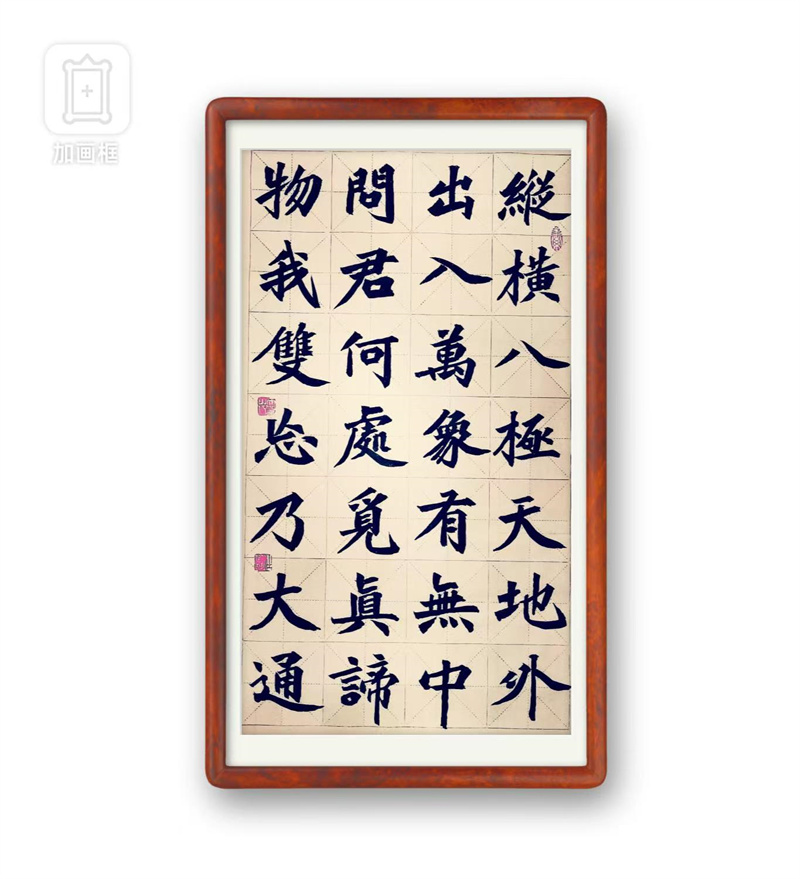 加画框
縱橫八極天地外
出入萬象有無中
問君何處覓眞諦
物我雙忘乃大通